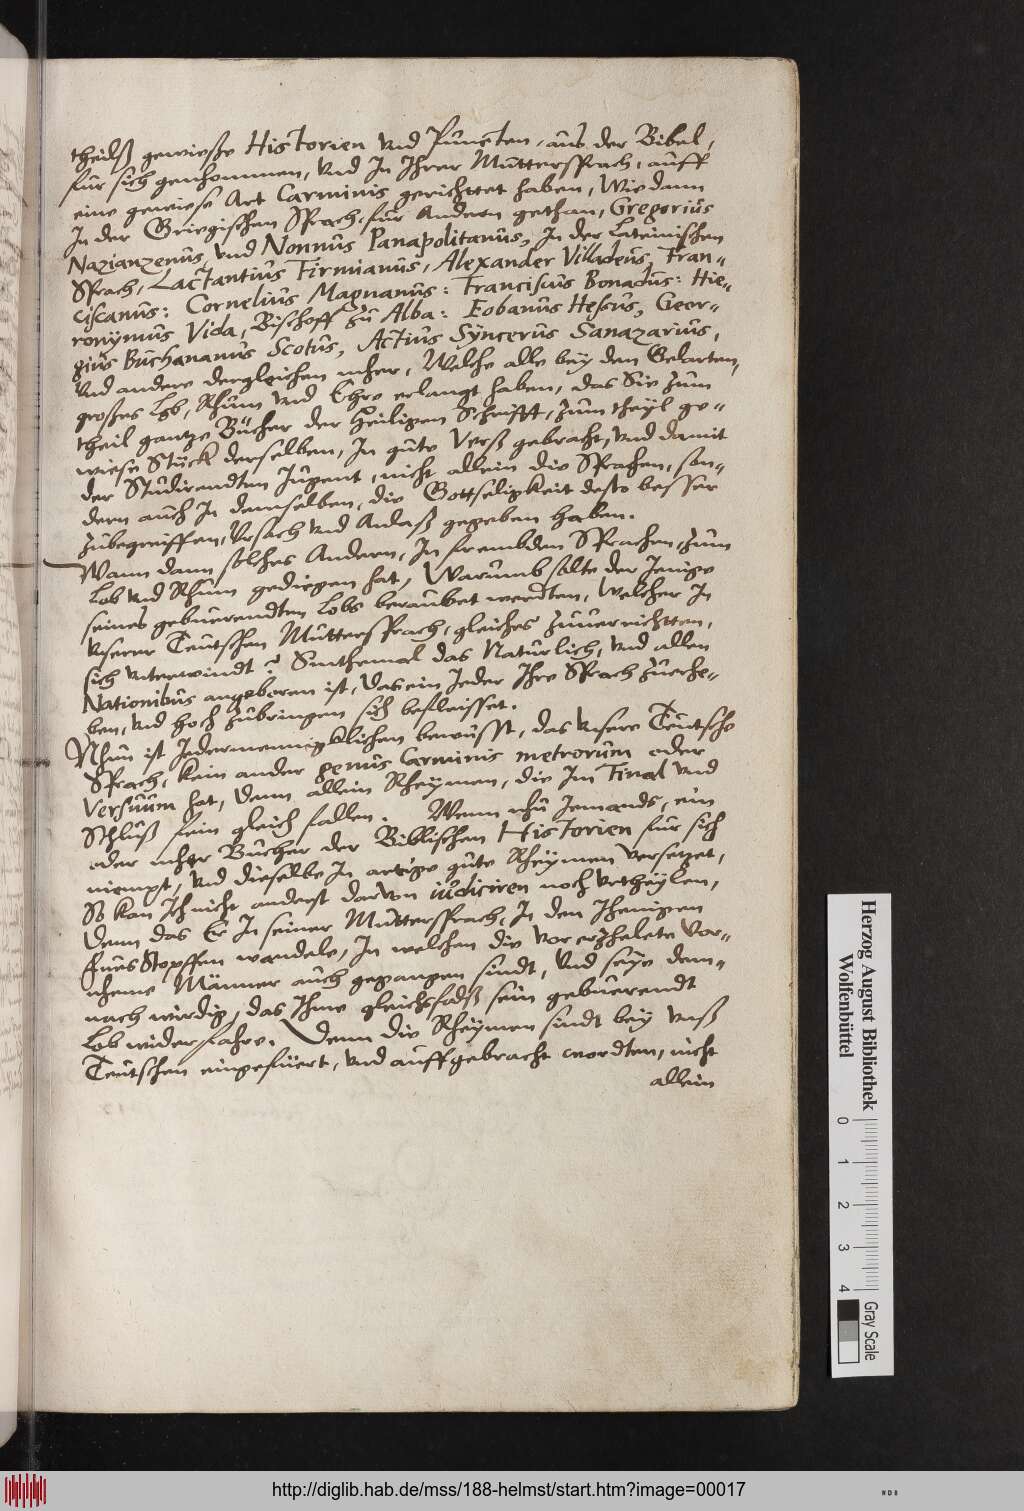 theilß gewieße Historien vnd Puncten, aus der Bibel,
fur sich genhommen, vnd In Ihrer Muttersprach, auff
eine gewiese Art Carminis gerichttet haben, Wie dann
In der Griegischen Sprach, fur Andern gethan, Gregorius
Nazianzenus, vnd Nonnus Panapolitanus, In der Lateinischen
Sprach, Lactantius Firmianus, Alexander Villadeus, Fran-
ciscanus: Cornelius Magnanus: Franciscus Bonadus: Hie-
ronymus Vida, Bischoff zu Alba: Eobanus Hessus, Geor-
gius Buchananus Scotus, Actius Syncerus Sanazarius,
vnd andere dergleichen mher, Welche alle bey den Gelarten,
großes Lob, Rhum vnd Ehre erlangt haben, das Sie zum
theil gantze Bücher der Heiligen Schrifft, zum theyl ge-
wiese Stück derselben, In gute Verß gebracht, vnd damit
der Studirendten Jugent, nicht allein die Sprachen, son-
dern auch In demselben, die Gottseligkeit desto besser
zubegreiffen, Vrsach vnd Anlaß gegeben haben.
Wann dann solches Andern, In frembden Sprachen, zum
Lob vnd Rhum gediegen hat, Warumb solte der Jenige
seines gebuerendten Lobs beraubet werdten, Welcher In
vnserer Teutschen Muttersprach, gleiches zuuerrichtten,
sich vnterwindt? Sinthemal das Naturlich, vnd allen
Nationibus angeboren ist, das ein Jeder Ihre Sprach zuerhe-
ben, vnd hoch zubringen sich befleisset.
Nhun ist Jedermenniglichen bewusst, das vnsere Teutsche
Sprach, kein ander genus Carminis metrorum oder
Versuum hat, denn allein Rheymen, die Im Final vnd
Schluß fein gleich fallen. Wenn nhu Jemands, ein
oder mher Bücher der Biblischen Historien fur sich
niempt, vnd dieselbe In artige gute Rheymen versetzet,
So kan Ich nicht anderst darvon iudiciren noch vrtheylen,
Denn das Er In seiner Muttersprach, In den Jhenigen
Fues Stopffen wandele, In welchen die vor erzhelete Vor-
nheme Männer auch gegangen sindt, Vnd seye dem-
nach wirdig, das Ihme gleichsfalß sein gebuerendt
Lob widerfahre. Denn die Rheymen sindt bey vnß
Teutschen eingefüert, vnd auffgebracht wordten, nicht
allein
Herzog August Bibliothek
Wolfenbüttel
0 1 2 3 4
Gray Scale
http://diglib.hab.de/mss/188-helmst/start.htm?image=00017